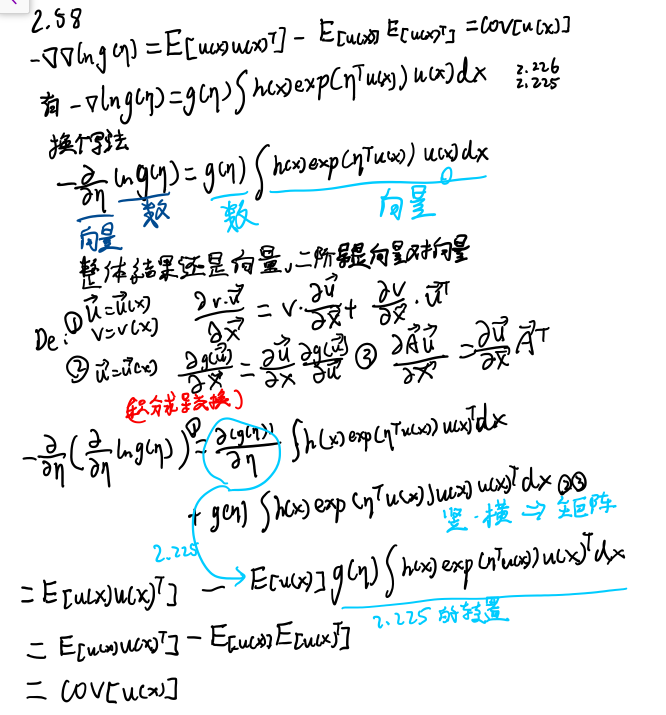 2.58
-∇∇ln g(η) = E[u(x)u(x)ᵀ] - E[u(x)] E[u(x)ᵀ] = cov[u(x)]
有 -∇ln g(η) = g(η) ∫ h(x) exp(ηᵀu(x)) u(x) dx 2.226
2.225
换个写法
-∂/∂η ln g(η) = g(η) ∫ h(x) exp(ηᵀu(x)) u(x) dx
向量 数 数 向量
整体结果还是向量,二阶导是向量对向量
De: ① u⃗ = u⃗(x) v = v(x) ∂v·u⃗/∂x⃗ = v·∂u⃗/∂x⃗ + ∂v/∂x⃗·u⃗ᵀ
② u⃗ = u⃗(x) ∂g(u⃗)/∂x⃗ = ∂u⃗/∂x ∂g(u⃗)/∂u⃗ ③ ∂A⃗u⃗/∂x⃗ = ∂u⃗/∂x⃗ A⃗ᵀ
(积分求导交换)
-∂/∂η (∂/∂η ln g(η)) ①= ∂(g(η))/∂η ∫ h(x) exp(ηᵀu(x)) u(x)ᵀ dx
+ g(η) ∫ h(x) exp(ηᵀu(x)) u(x) u(x)ᵀ dx ②③
竖·横 ⇒ 矩阵
2.225
= E[u(x)u(x)ᵀ] - E[u(x)] g(η) ∫ h(x) exp(ηᵀu(x)) u(x)ᵀ dx
2.225 的转置
= E[u(x)u(x)ᵀ] - E[u(x)] E[u(x)ᵀ]
= cov[u(x)]